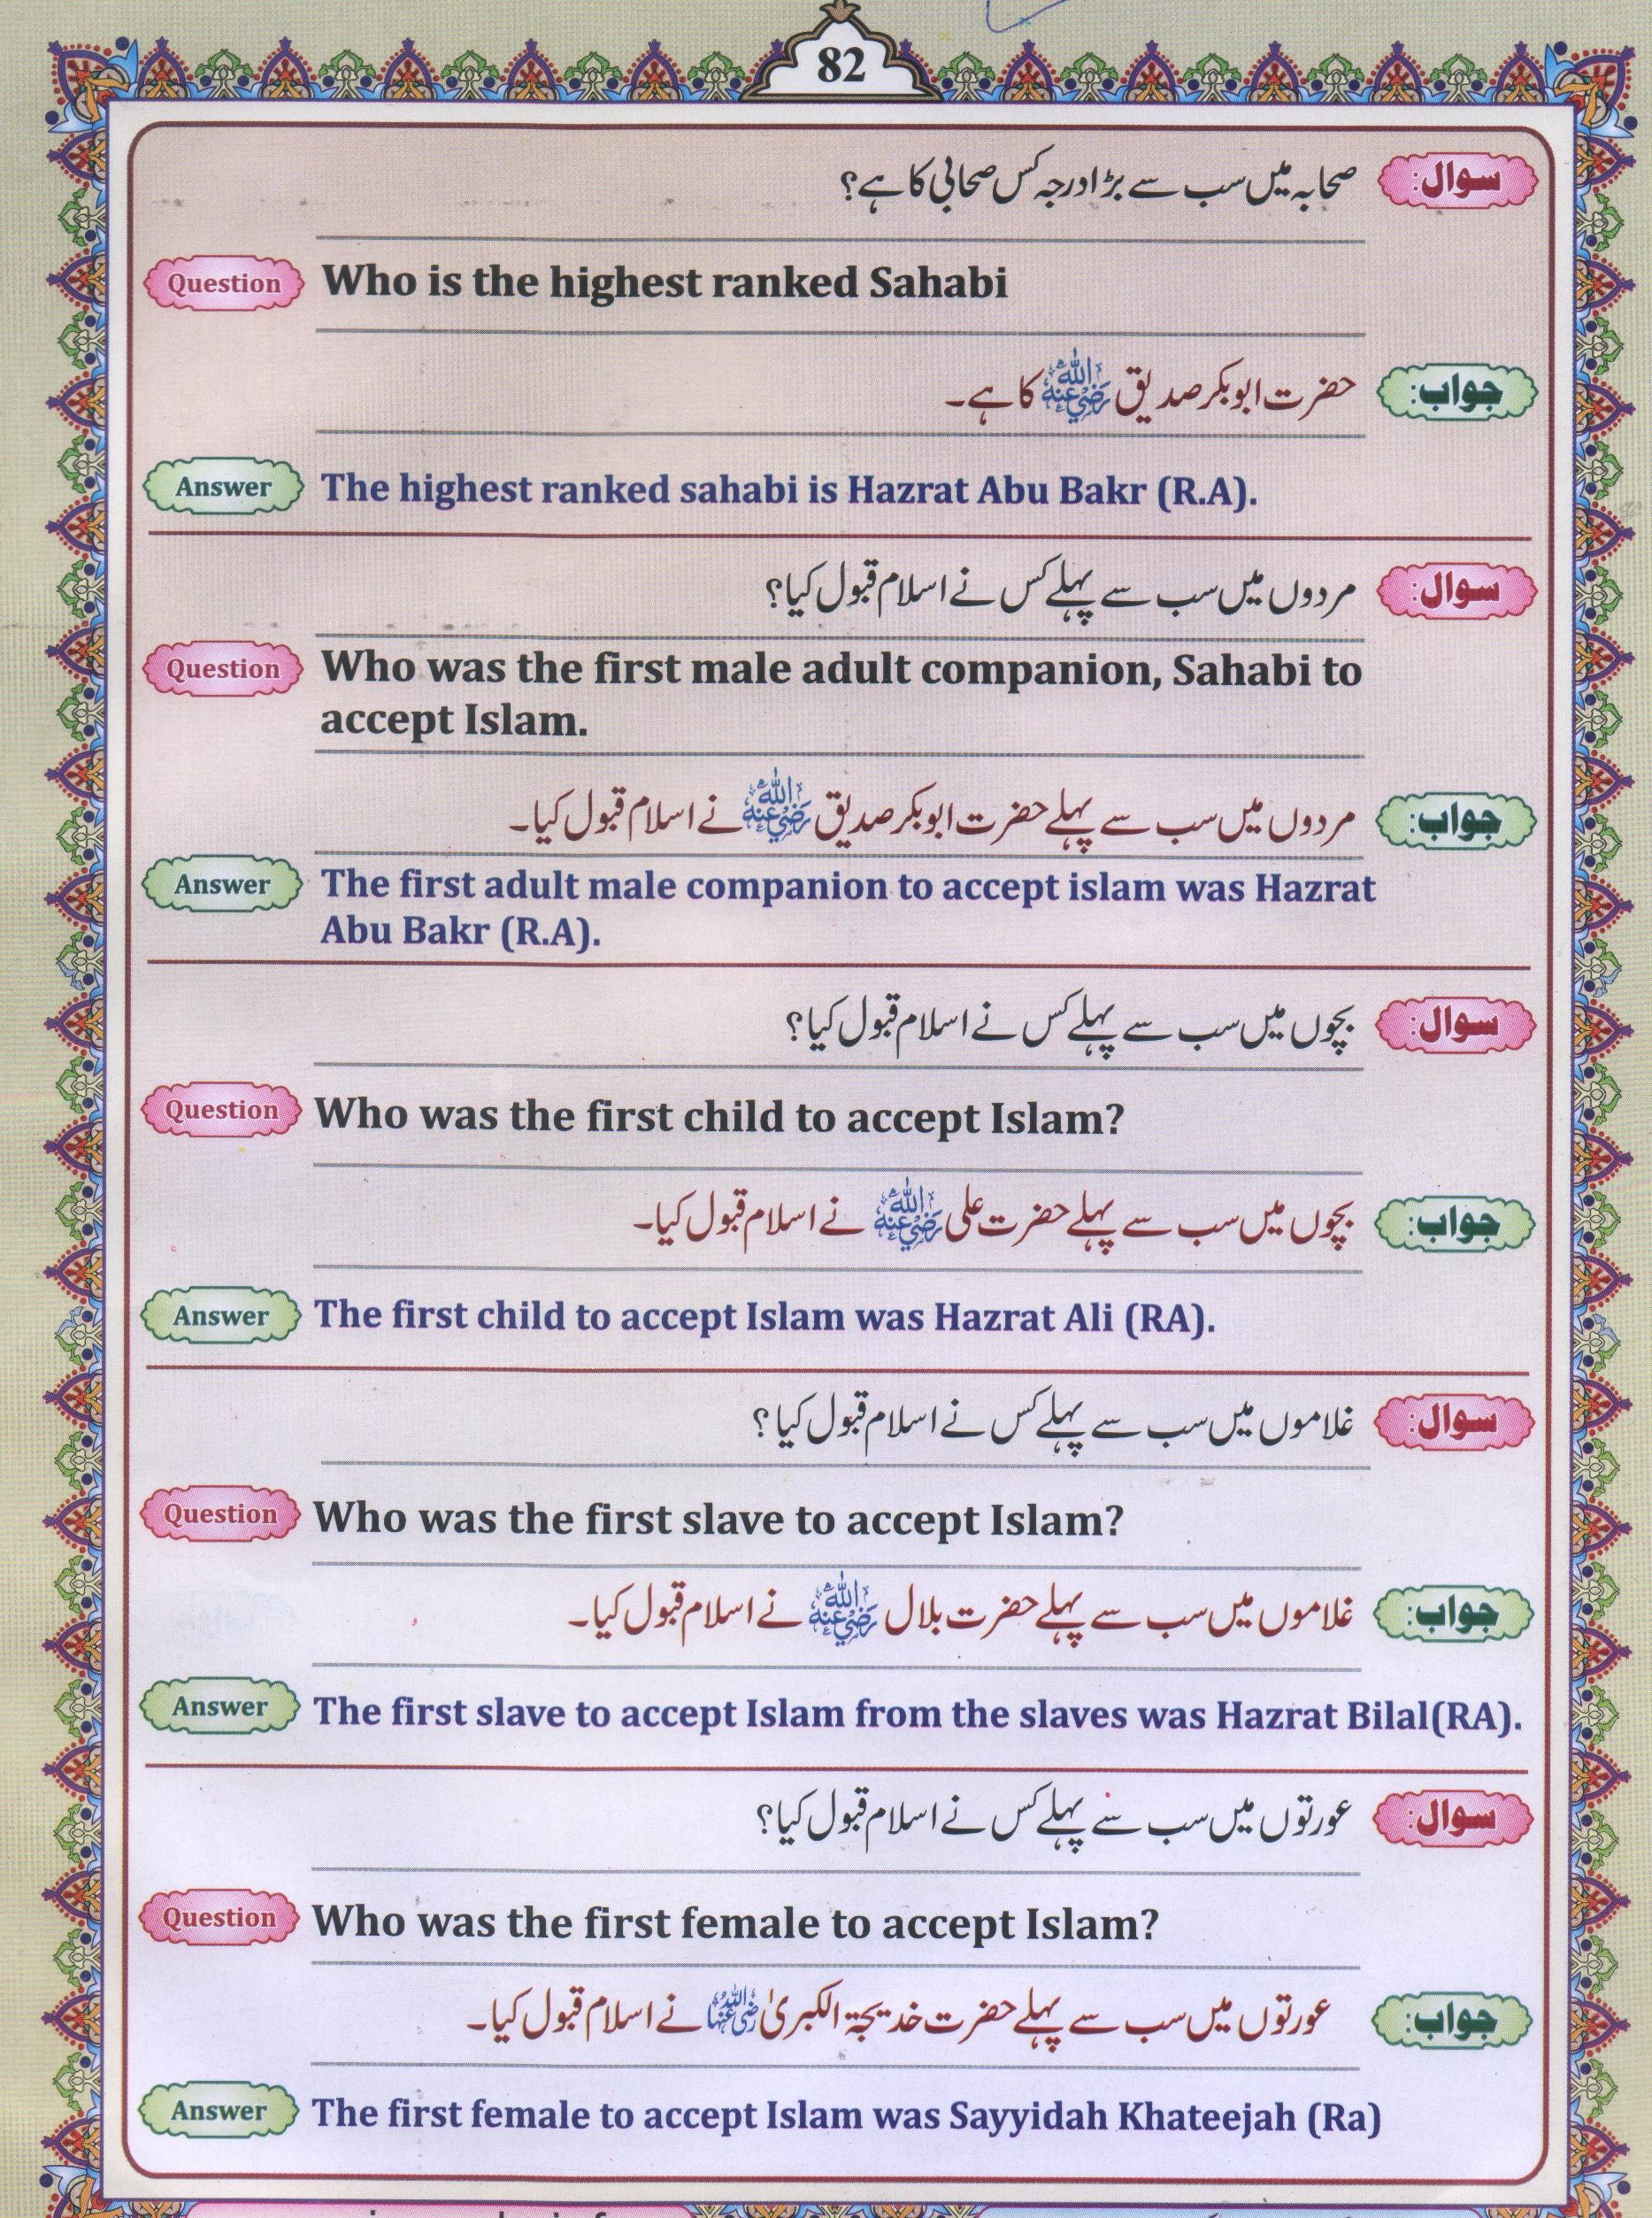 82
سوال: صحابہ میں سب سے بڑا درجہ کس صحابی کا ہے؟
Question Who is the highest ranked Sahabi
جواب: حضرت ابوبکر صدیق رَضِيَ اللهُ عَنهُ کا ہے۔
Answer The highest ranked sahabi is Hazrat Abu Bakr (R.A).
سوال: مردوں میں سب سے پہلے کس نے اسلام قبول کیا؟
Question Who was the first male adult companion, Sahabi to
accept Islam.
جواب: مردوں میں سب سے پہلے حضرت ابوبکر صدیق رَضِيَ اللهُ عَنهُ نے اسلام قبول کیا۔
Answer The first adult male companion to accept islam was Hazrat
Abu Bakr (R.A).
سوال: بچوں میں سب سے پہلے کس نے اسلام قبول کیا؟
Question Who was the first child to accept Islam?
جواب: بچوں میں سب سے پہلے حضرت علی رَضِيَ اللهُ عَنهُ نے اسلام قبول کیا۔
Answer The first child to accept Islam was Hazrat Ali (RA).
سوال: غلاموں میں سب سے پہلے کس نے اسلام قبول کیا؟
Question Who was the first slave to accept Islam?
جواب: غلاموں میں سب سے پہلے حضرت بلال رَضِيَ اللهُ عَنهُ نے اسلام قبول کیا۔
Answer The first slave to accept Islam from the slaves was Hazrat Bilal(RA).
سوال: عورتوں میں سب سے پہلے کس نے اسلام قبول کیا؟
Question Who was the first female to accept Islam?
جواب: عورتوں میں سب سے پہلے حضرت خدیجۃ الکبریٰ رضی اللہ عنہا نے اسلام قبول کیا۔
Answer The first female to accept Islam was Sayyidah Khateejah (Ra)